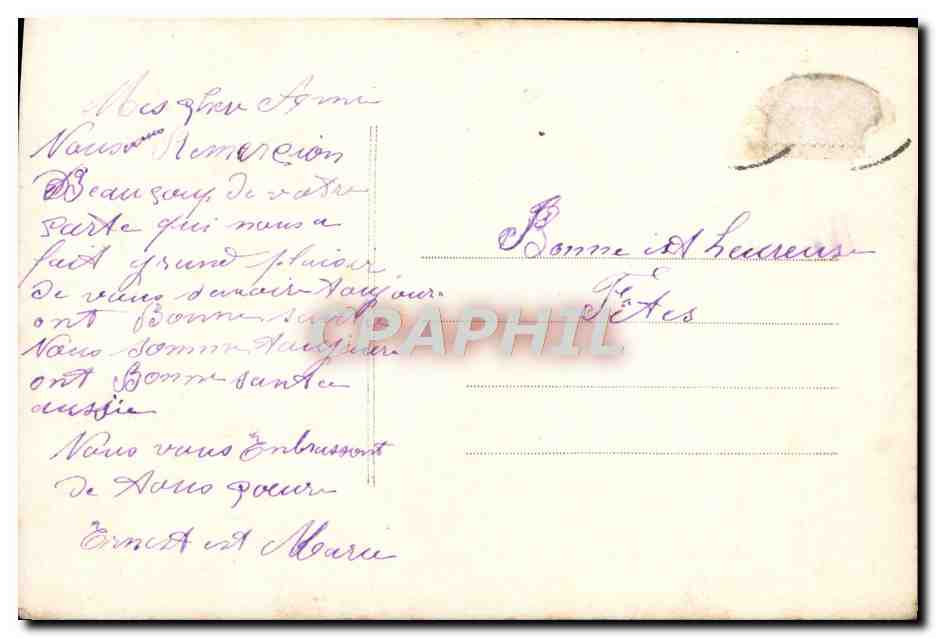 Mes cher Ami
Nous vous Remercion
Beaucoup de votre
carte qui nous a
fait grand plaisir
de vous savoir toujour
ont Bonne sante
Nous somme toujour
ont Bonne sante
aussie
Nous vous Enbrassont
de tous coeur
Ernest et Marie
Bonne et heureuse
Fêtes
CPAPHIL